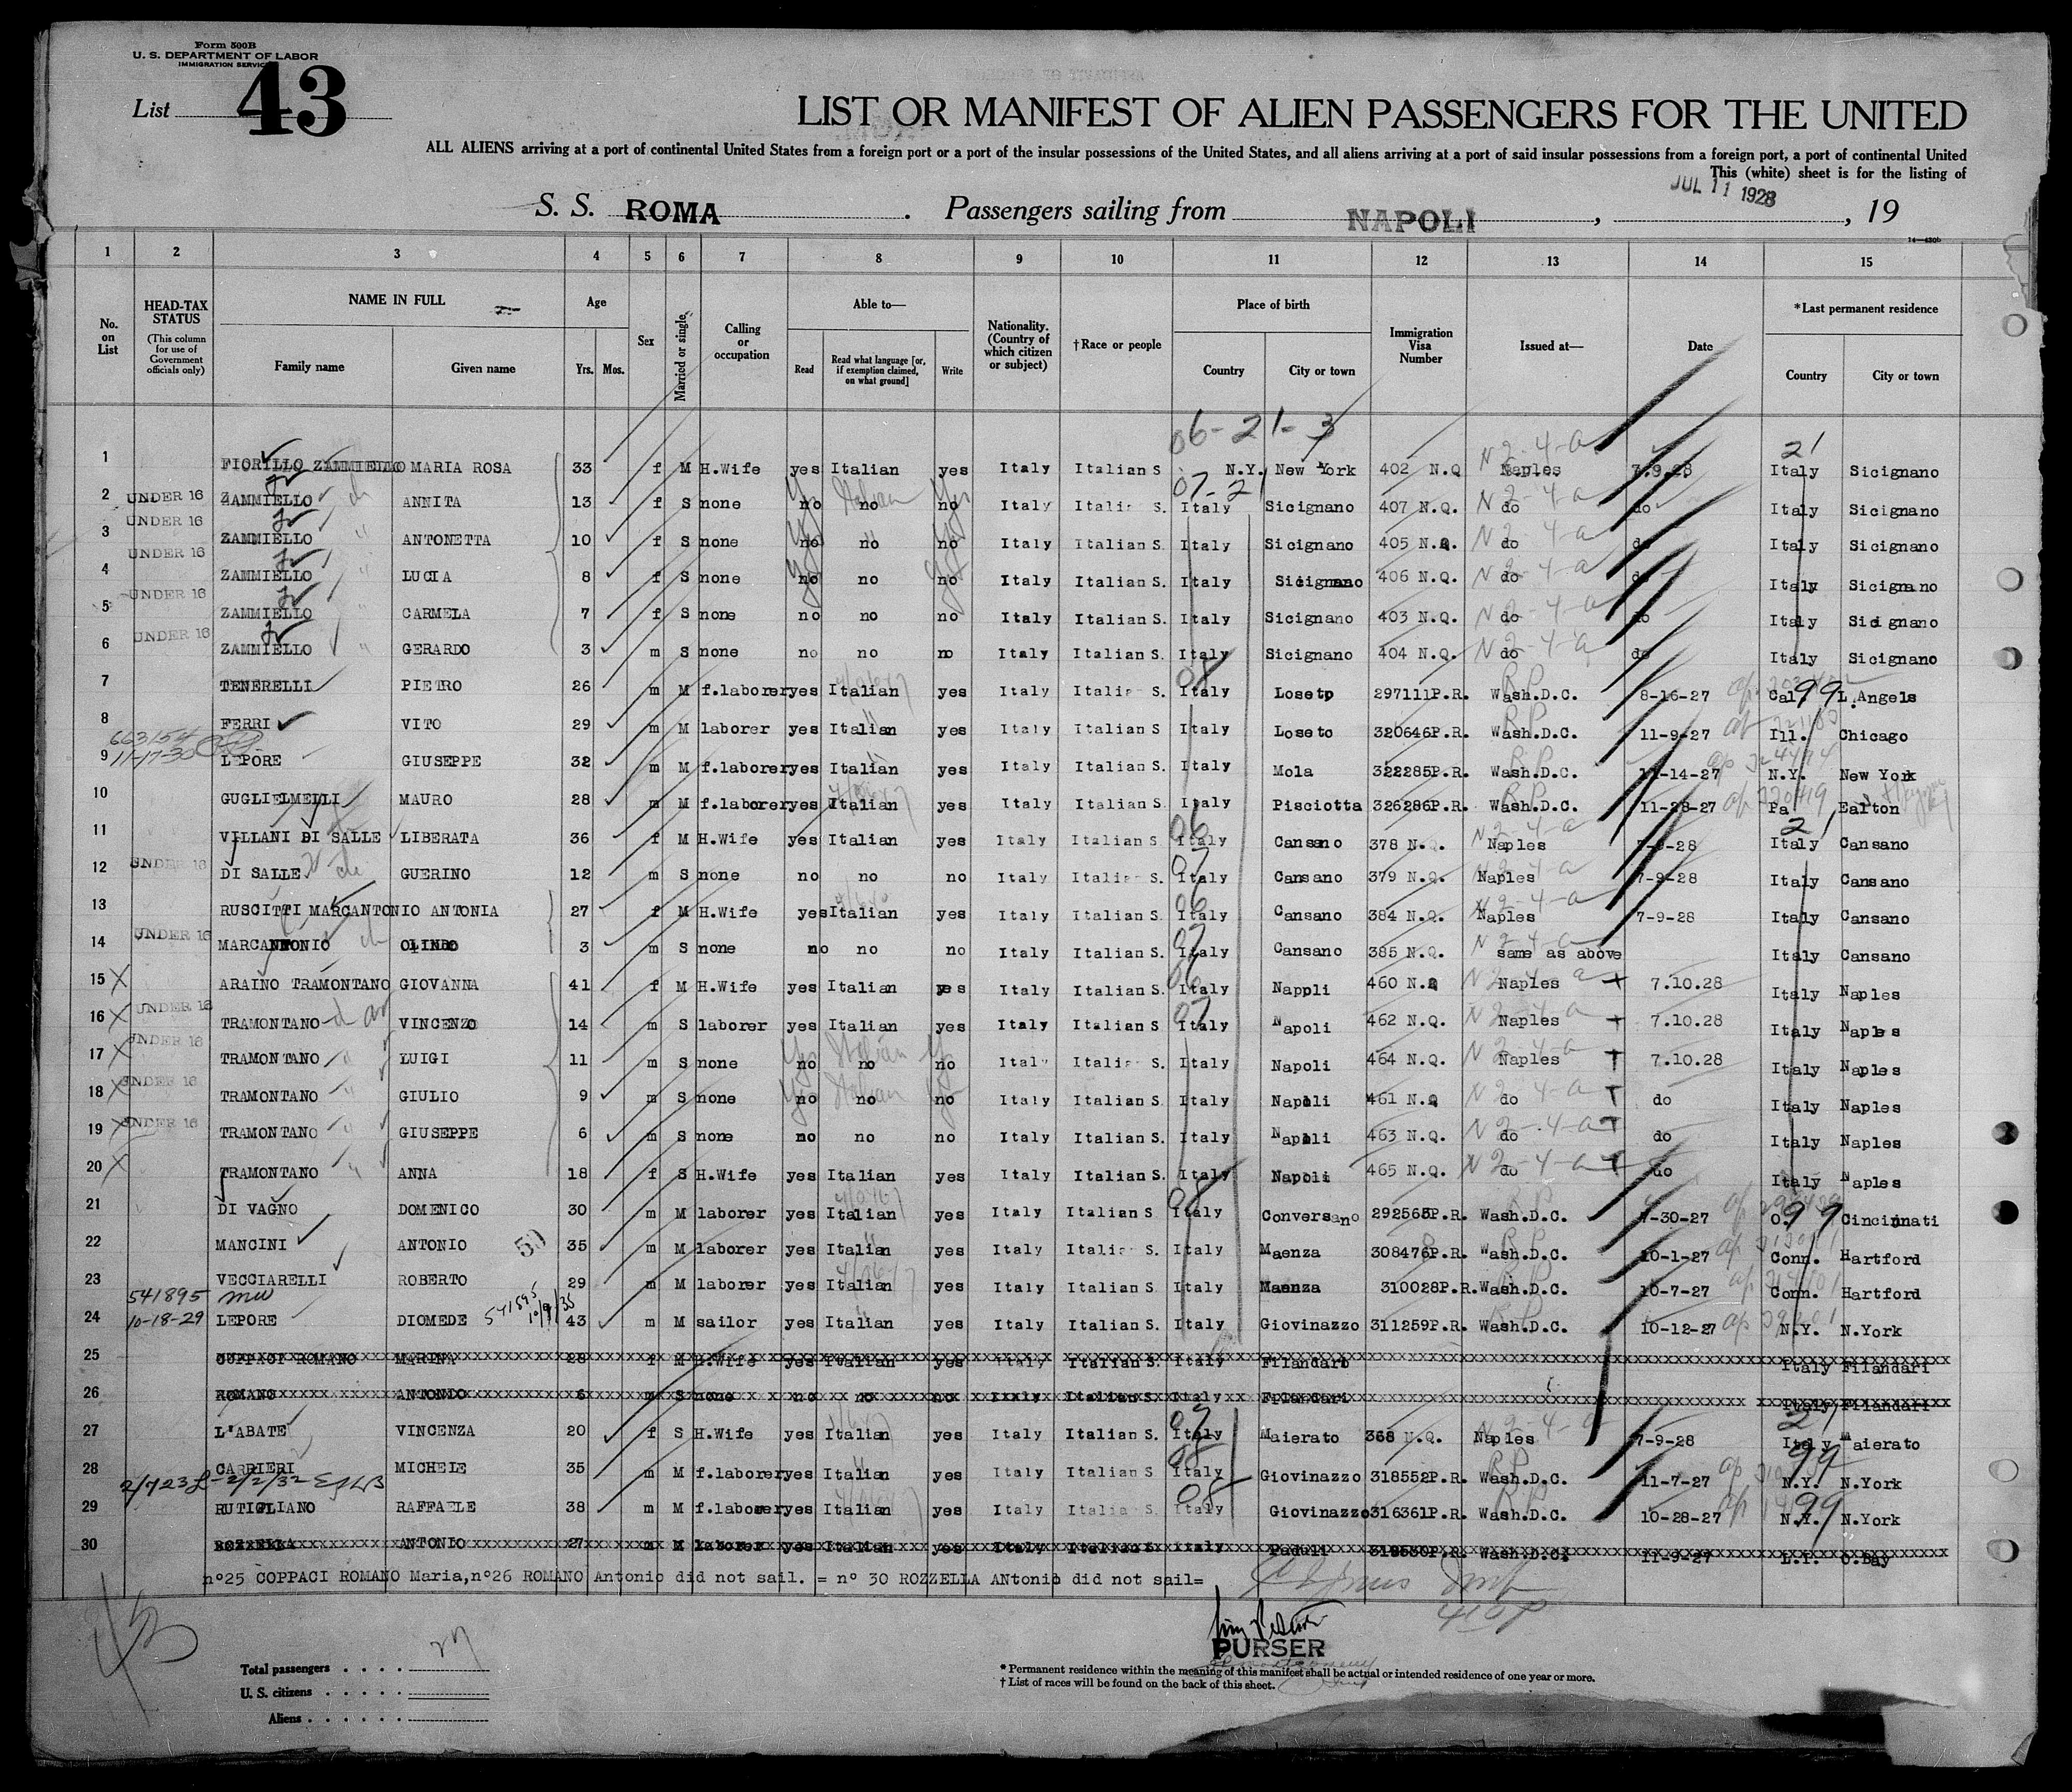 Form 500B
U. S. DEPARTMENT OF LABOR
IMMIGRATION SERVICE
List 43
LIST OR MANIFEST OF ALIEN PASSENGERS FOR THE UNITED
ALL ALIENS arriving at a port of continental United States from a foreign port or a port of the insular possessions of the United States, and all aliens arriving at a port of said insular possessions from a foreign port, a port of continental United
This (white) sheet is for the listing of
JUL 11 1928
S. S. ROMA. Passengers sailing from NAPOLI, , 19
14—430b
1 2 3 4 5 6 7 8 9 10 11 12 13 14 15
No. on List
HEAD-TAX STATUS (This column for use of Government officials only)
NAME IN FULL Family name Given name
Age Yrs. Mos.
Sex
Married or single
Calling or occupation
Able to— Read Read what language [or, if exemption claimed, on what ground] Write
Nationality. (Country of which citizen or subject)
†Race or people
Place of birth Country City or town
Immigration Visa Number
Issued at—
Date
*Last permanent residence Country City or town
06-21-3 2/
1 FIORILLO ZAMMIELLO MARIA ROSA 33 f M H.Wife yes Italian yes Italy Italian S N.Y. New York 402 N.Q N 2-4-a Naples 7.9.28 Italy Sicignano
07-2
2 UNDER 16 ZAMMIELLO di ANNITA 13 f S none no Yes no Italian no Yes Italy Italian S. Italy Sicignano 407 N.Q. N 2-4-a do do Italy Sicignano
3 UNDER 16 ZAMMIELLO " ANTONETTA 10 f S none no Yes no no Yes Italy Italian S. Italy Sicignano 405 N.Q. N 2-4-a do do Italy Sicignano
4 UNDER 16 ZAMMIELLO " LUCIA 8 f S none no Yes no no Yes Italy Italian S. Italy Sicignano 406 N.Q. N 2-4-a do do Italy Sicignano
5 UNDER 16 ZAMMIELLO " CARMELA 7 f S none no no no Italy Italian S. Italy Sicignano 403 N.Q. N 2-4-a do do Italy Sicignano
6 UNDER 16 ZAMMIELLO " GERARDO 3 m S none no no no Italy Italian S. Italy Sicignano 404 N.Q. N 2-4-a do do Italy Sicignano
7 TENERELLI PIETRO 26 m M f.laborer yes Italian yes Italy Italian S. 08 Italy Loseto 297111P.R. RP Wash.D.C. 8-16-27 Cal 99 L.Angels
8 FERRI VITO 29 m M laborer yes Italian yes Italy Italian S Italy Loseto 320646P.R. RP Wash.D.C. 11-9-27 Ill. Chicago
663154
11-17-30
9 LEPORE GIUSEPPE 32 m M f.laborer yes Italian yes Italy Italian S. Italy Mola 322285P.R. RP Wash.D.C. 11-14-27 N.Y. New York
10 GUGLIELMELLI MAURO 28 m M f.laborer yes Italian yes Italy Italian S. Italy Pisciotta 326286P.R. Wash.D.C. 11-28-27 Pa Ealton
11 VILLANI DI SALLE LIBERATA 36 f M H.Wife yes Italian yes Italy Italian S 06 Italy Cansano 378 N.Q. N 2-4-a Naples 7-9-28 2/ Italy Cansano
12 UNDER 16 DI SALLE di GUERINO 12 m S none no no no Italy Italian S. 07 Italy Cansano 379 N.Q. N 2-4-a Naples 7-9-28 Italy Cansano
13 RUSCITTI MARCANTONIO ANTONIA 27 f M H.Wife yes Italian yes Italy Italian S. 06 Italy Cansano 384 N.Q. N 2-4-a Naples 7-9-28 Italy Cansano
14 UNDER 16 MARCANTONIO di OLINDO 3 m S none no no no Italy Italian S. 07 Italy Cansano 385 N.Q. N 2-4-a same as above Italy Cansano
15 X ARAINO TRAMONTANO GIOVANNA 41 f M H.Wife yes Italian yes Italy Italian S. 06 Italy Nappli 460 N.Q N 2-4-a Naples 7.10.28 Italy Naples
16 X UNDER 16 TRAMONTANO VINCENZO 14 m S laborer yes Italian yes Italy Italian S 07 Italy Napoli 462 N.Q. N 2-4-a Naples 7.10.28 Italy Naples
17 X UNDER 16 TRAMONTANO " LUIGI 11 m S none no Yes no Italian no Yes Italy Italian S. Italy Napoli 464 N.Q. N 2-4-a Naples 7.10.28 Italy Naples
18 X UNDER 16 TRAMONTANO " GIULIO 9 m S none no Yes no Italian no Yes Italy Italian S. Italy Napoli 461 N.Q N 2-4-a do do Italy Naples
19 X UNDER 16 TRAMONTANO " GIUSEPPE 6 m S none no no no Italy Italian S. Italy Napoli 463 N.Q. N 2-4-a do do Italy Naples
20 X TRAMONTANO " ANNA 18 f S H.Wife yes Italian yes Italy Italian S. Italy Napoli 465 N.Q. N 2-4-a do do Italy Naples
21 DI VAGNO DOMENICO 30 m M laborer yes Italian yes Italy Italian S 08 Italy Conversano 292565P.R. RP Wash.D.C. 7-30-27 O. 99 Cincinnati
22 MANCINI ANTONIO 35 m M laborer yes Italian yes Italy Italian S. Italy Maenza 308476P.R. Wash.D.C. 10-1-27 Conn. Hartford
23 VECCIARELLI ROBERTO 29 m M laborer yes Italian yes Italy Italian S. Italy Maenza 310028P.R. Wash.D.C. 10-7-27 Conn. Hartford
541895
10-18-29
541895 10/9/35
24 LEPORE DIOMEDE 43 m M sailor yes Italian yes Italy Italian S. Italy Giovinazzo 311259P.R. RP Wash.D.C. 10-12-27 N.Y. N.York
25 CUPPACI ROMANO MARINA 28 f M H.Wife yes Italian yes Italy Italian S. Italy Filandari Italy Filandari
26 ROMANO ANTONIO 6 m S none no no no Italy Italian S. Italy Filandari Italy Filandari
27 L'ABATE VINCENZA 20 f S H.Wife yes Italian yes Italy Italian S. 07 Italy Maierato 368 N.Q. N 2-4-a Naples 7-9-28 2/ Italy Maierato
28 CARRIERI MICHELE 35 m M f.laborer yes Italian yes Italy Italian S 08 Italy Giovinazzo 318552P.R. RP Wash.D.C. 11-7-27 99 N.Y. N.York
29 RUTIGLIANO RAFFAELE 38 m M f.laborer yes Italian yes Italy Italian S 08 Italy Giovinazzo 316361P.R. RP Wash.D.C. 10-28-27 99 N.Y. N.York
30 ROZZELLA ANTONIO 27 m M laborer yes Italian yes Italy Italian S Italy Paduli 319530P.R. Wash.D.C. 11-9-27 L.I. O.Bay
n°25 COPPACI ROMANO Maria,n°26 ROMANO Antonio did not sail. = n° 30 ROZZELLA ANtonio did not sail=
PURSER
Total passengers . . . . 27
U. S. citizens . . . . .
Aliens . . . . . .
* Permanent residence within the meaning of this manifest shall be actual or intended residence of one year or more.
† List of races will be found on the back of this sheet.